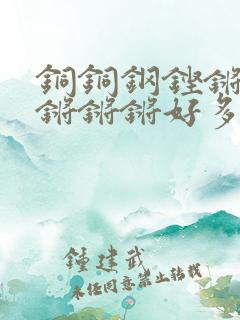 銅銅鋼鏗鏘
鏘鏘鏘好多
鍾建武
未经同意禁止转载